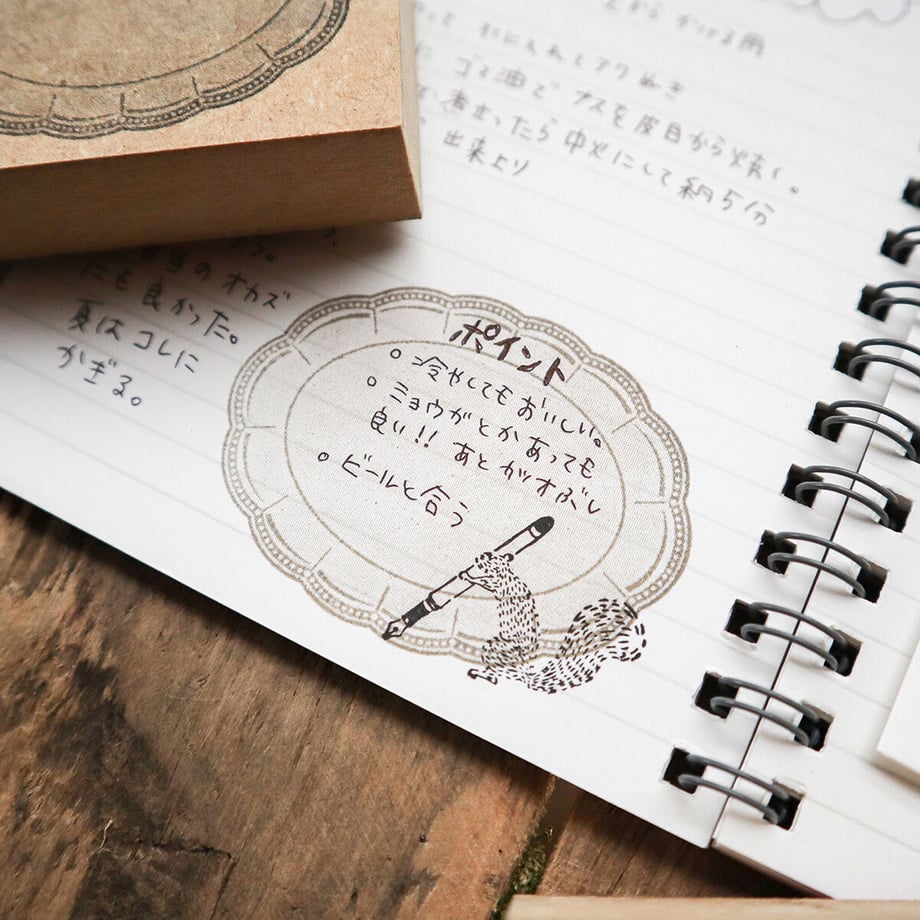 かける用
水に入れてアクぬき
ゴマ油でナスを皮目から焼く。
煮立ったら中火にして約5分
出来上り
当のオカズ
にも良かった。
夏はコレに
かぎる。
ポイント
○ 冷やしてもおいしい。
○ ミョウがとかあっても
良い!! あとカツオぶし
○ ビールと合う